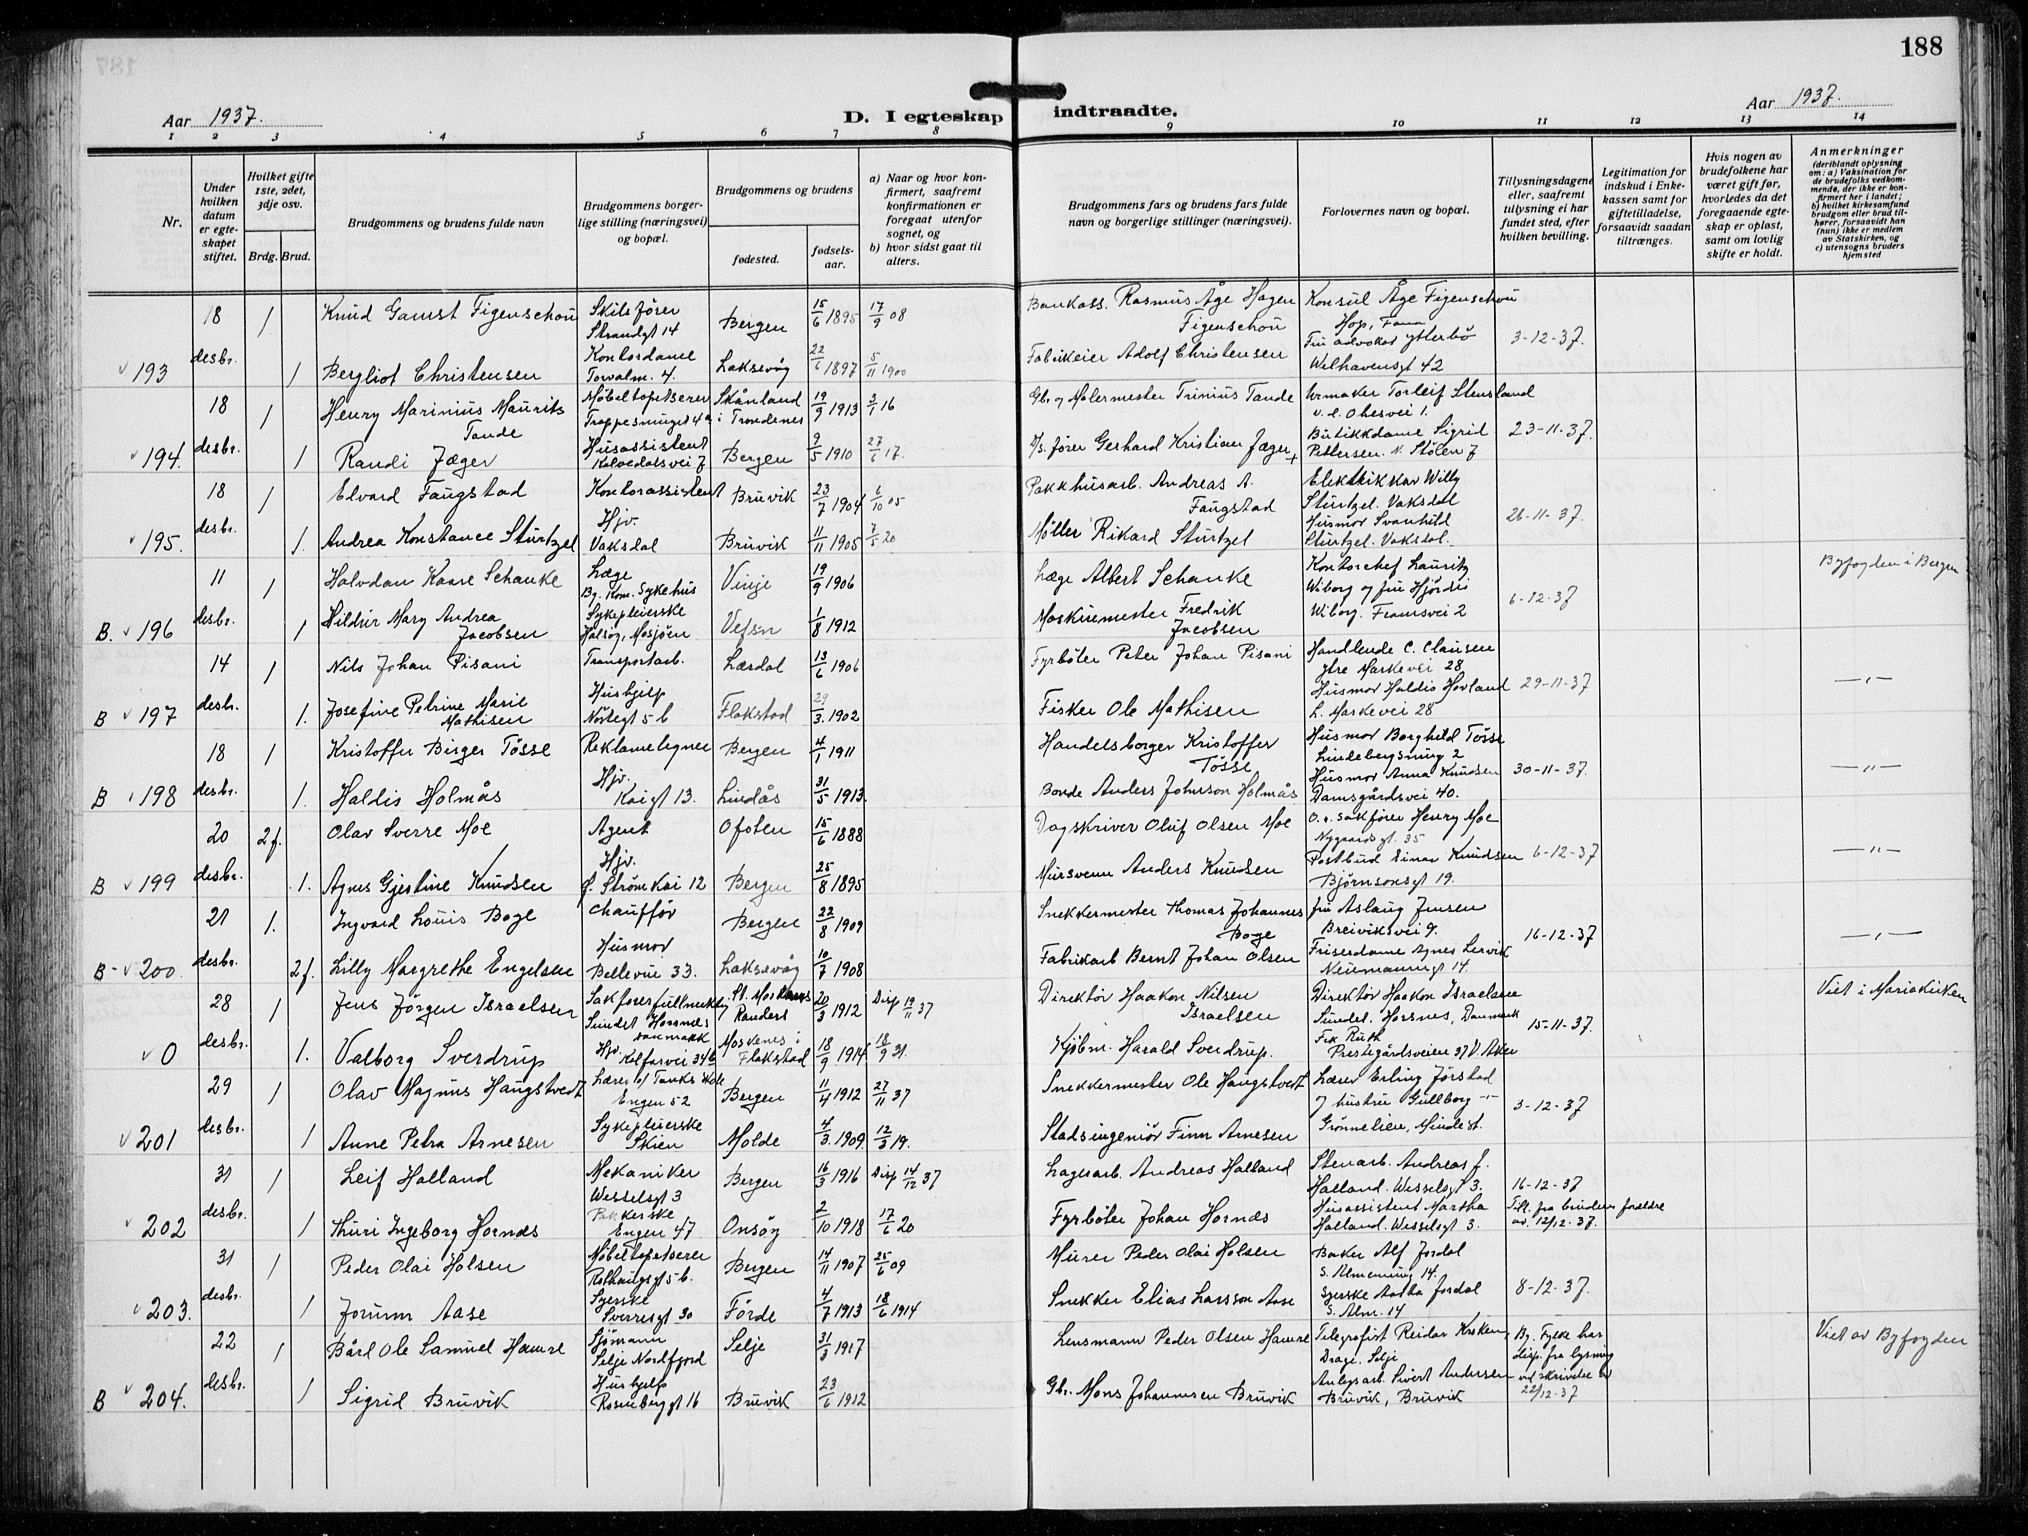 188
Aar 1937.
D. I egteskap indtraadte.
Aar 1937.
1 2 3 4 5 6 7 8 9 10 11 12 13 14
Nr.
Under hvilken datum er egteskapet stiftet.
Hvilket gifte 1ste, 2det, 3dje osv.
Brdg. Brud.
Brudgommens og brudens fulde navn
Brudgommens borgerlige stilling (næringsvei) og bopæl.
Brudgommens og brudens
fødested.
fødselsaar.
a) Naar og hvor konfirmert, saafremt konfirmationen er foregaat utenfor sognet, og
b) hvor sidst gaat til alters.
Brudgommens fars og brudens fars fulde navn og borgerlige stillinger (næringsvei).
Forlovernes navn og bopæl.
Tillysningsdagene eller, saafremt tillysning ei har fundet sted, efter hvilken bevilling.
Legitimation for indskud i Enkekassen samt for giftetilladelse, forsaavidt saadan tiltrænges.
Hvis nogen av brudefolkene har været gift før, hvorledes da det foregaaende egteskap er opløst, samt om lovlig skifte er holdt.
Anmerkninger
(deriblandt oplysning om: a) Vaksination for de brudefolks vedkommende, der ikke er konfirmert her i landet;
b) hvilket kirkesamfund brudgom eller brud tilhører, forsaavidt han (hun) ikke er medlem av Statskirken, og
c) utensogns bruders hjemsted
18 1 Knud Gamst Figenschou Skibsfører Strandgt 14 Bergen 15/6 1895 17/9 08 Bankass. Rasmus Åge Hagen Figenschou Konsul Åge Figenschou Hop, Fana
v 193 desbr. 1 Bergliot Christensen Kontordame Torvalm. 4. Laksevåg 22/6 1897 5/11 1900 Fabrikeier Adolf Christensen Fru advokat Ytterbö Welhavensgt 42 3-12-37.
18 1 Henry Marinius Maurits Tande Møbeltapetserer Trappesmuget 4a Skånland i Trondenes 19/9 1913 3/1 16 Gbr. og Malermester Trinius Tande Urmaker Torleif Stensland v. l. Ohesvei 1.
v 194. desbr. 1 Randi Jæger Husassistent Kalvedalsvei 7 Bergen 9/5 1910 27/6 17. D/S. fører Gerhard Kristian Jæger + Butikkdame Sigrid Pettersen. N. Stölen 7 23-11-37.
18 1 Edvard Faugstad Kontorassistent Bruvik 23/7 1904 6/10 05 Pakkhusarb. Andreas A. Faugstad Elektrikkar Willy Sturtzel. Vaksdal
v 195. desbr. 1. Andrea Konstance Sturtzel Hjv. Vaksdal Bruvik 11/11 1905 7/5 20 Møller Rikard Sturtzel Husmor Svanhild Sturtzel. Vaksdal. 26-11-37.
11 1 Halvdan Kaare Schanke Læge Bg. Kom. Sykehus Vinje 19/9 1906 Læge Albert Schanke Kontorchef Lauritz Wiborg og fru Hjördis Wiborg. Framsvei 2 6-12-37 Byfogden i Bergen
B. v 196 desbr. 1 Hildur Mary Andrea Jacobsen Sykepleierske Halsöy, Mosjöen Vefsn 1/8 1912 Maskinmester Fredrik Jacobsen
14 1 Nils Johan Pisani Transportarb. Lærdal 13/6 1906 Fyrböter Peter Johan Pisani Handlende C. Clausen Ytre Markevei 28 —"—
B v 197 desbr. 1. Josefine Petrine Marie Mathisen Hushjelp Nöstegt 5 b Flakstad 29/3 1902 Fisker Ole Mathisen Husmor Haldis Hovland L. Markevei 28 29-11-37
18 1 Kristoffer Birger Tösse Reklametegner Bergen 4/1 1911 Handelsborger Kristoffer Tösse Husmor Borghild Tösse Lindebergsmug 2 —"—
B v 198 desbr. 1. Haldis Holmås Hjv. Kaigt 13. Lindås 31/5 1913. Bonde Anders Johnson Holmås Husmor Anna Knudsen Damsgårdsvei 40. 30-11-37.
20 2f. Olav Sverre Moe Agent Ofoten 15/6 1888 Dagskriver Oluf Olsen Moe O.r. sakfører Henry Moe Nygaardsgt. 35 —"—
B v 199 desbr. 1. Agnes Gjestine Knudsen Hjv. Ø. Strömkai 12 Bergen 25/8 1895 Mursvenn Anders Knudsen Postbud Einar Knudsen Björnsonsgt 19. 6-12-37
21 1. Ingvard Louis Boge Chaufför Bergen 22/8 1909 Snekkermester Thomas Johannes Boge fru Aslaug Jensen Breiviksvei 9. —"—
B- v 200 desbr. 2f. Lilly Margrethe Engelsen Husmor Bellevue 33. Laksevåg 10/7 1908 Fabrikarb Bernt Johan Olsen Friserdame Agnes Lervik Neumannsgt 14. 16-12-37
28 1 Jens Jörgen Israelsen Sakførerfullmektig Sundet Horsnes Danmark St. Mortens Randers 20/3 1912 Disp 19/11 37 Direktör Haakon Nilsen Israelsen Direktör Haakon Israelsen Sundet. Horsnes, Danmark Viet i Mariakirken
v 0 desbr. 1. Valborg Sverdrup Hjv. Kalfarvei 34b Moskenes i Flakstad 18/9 1914 18/9 31. Kjöbm. Harald Sverdrup. Frk Ruth Prestegårdsveien 37 V. Aker 15-11-37.
29 1 Olav Magnus Haugstvedt Lærer v/ Tanks skole Engen 52 Bergen 11/4 1912 27/11 37 Snekkermester Ole Haugstvedt Lærer Erling Jørstad
v 201 desbr. 1 Anne Petra Arnesen Sykepleierske Skien Molde 4/3 1909 12/3 19. Stadsingeniör Finn Arnesen og hustru Gullborg —"— Grönnelien, Mindest. 3-12-37
31 1 Leif Halland Mekaniker Wesselsgt 3 Bergen 16/3 1916 Disp 14/12 37 Lagerarb. Andreas Halland Stenarb. Andreas J. Halland. Wesselsgt 3. 16-12-37
v 202 desbr. 1 Thuri Ingeborg Hornæs Pakkerske Engen 47 Onsöy 2/10 1918 17/6 20 Fyrböter Johan Hornæs Husassistent Martha Halland. Wesselsgt 3. Till. fra brudens foreldre av. 12/12-37.
31 1 Peder Olai Holsen Møbeltapetserer Rolhaugsgt 5 b. Bergen 14/11 1907 25/6 09 Murer Peder Olai Holsen Baker Alf Jordal S. Almenning 14.
v 203. desbr. 1 Jorunn Aase Syerske Sverresgt 30 Förde 4/7 1913 18/6 1914 Snekker Elias Larsson Aase Syerske Aasta Jordal S. Alm. 14 8-12-37.
22 1 Bård Ole Samuel Hamre Sjömann Selje Nordfjord Selje 31/3 1917 Lensmann Peder Olsen Hamre Telegrafist Reidar Drage. Selje By. Fylke har disp. fra lysning ved skrivelse av 22/12-37 Viet av Byfogden
B v 204. desbr. 1 Sigrid Bruvik Hushjelp Rosenbergsgt 16 Bruvik 23/6 1912 Gbr. Mons Johannesen Bruvik Anlegsarb. Sivert Andersen Bruvik, Bruvik